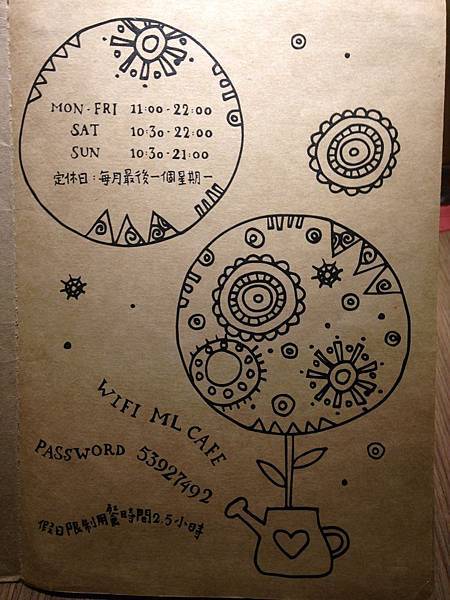 MON-FRI 11:00-22:00
SAT 10:30-22:00
SUN 10:30-21:00
定休日:每月最後一個星期一
WIFI ML CAFE
PASSWORD 53927492
假日限制用餐時間2.5小時